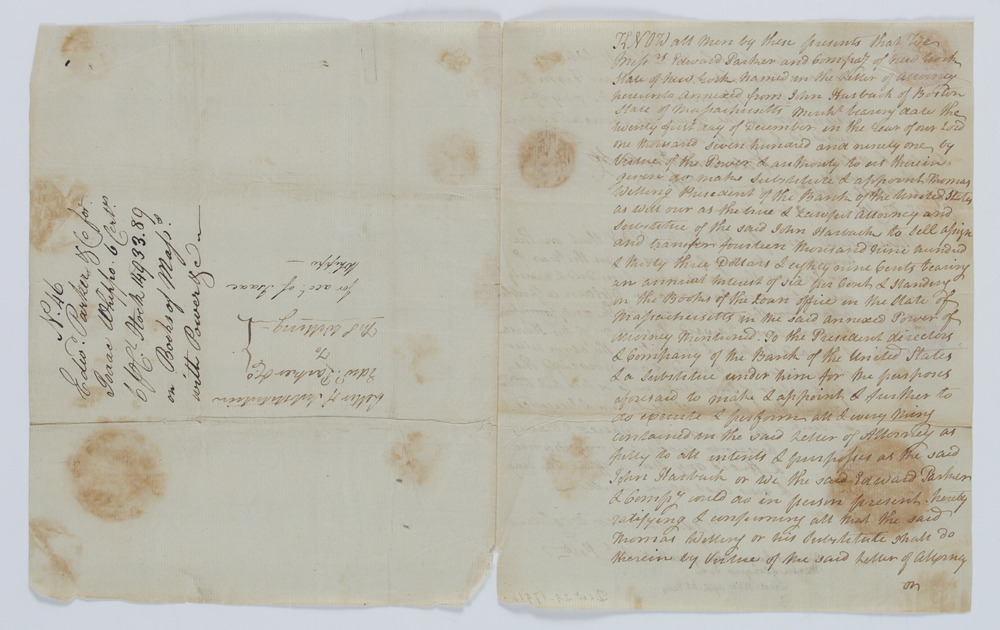 N.o 46
Edwd. Parker & Co for
Isaac Whippo 6 Certs
6 P Ct Stock 4933.89
on Books of Massa
with Power &c
Letter of Substitution
Edwd. Parker & Co
To
Thos Willing
for acct of Isaac
Whippo
KNOW all Men by these presents that We
Messrs Edward Parker and Compay of New York
State of New York named in the Letter of Attorney
hereunto annexed from John Harbach of Boston
State of Massachusetts Mercht bearing date the
twenty first day of December in the Year of our Lord
one thousand seven hundred and ninety one by
Virtue of the Power & authority to us therein
given do make Substitute & appoint Thomas
Willing President of the Bank of the United States
as well our as the true & Lawful Attorney and
Substitue of the said John Harbach to sell assign
and transfer fourteen thousand nine hundred
& thirty three Dollars & eighty nine Cents bearing
an annual interest of Six per Cent & Standing
in the Books of the Loan office in the State of
Massachusetts in the said annexed Power of
Attorney Mentioned. To the President directors
& Company of the Bank of the United States
& a substitue under him for the purposes
aforesaid to make & appoint & further to
do execute & perform all & every thing
contained in the said Letter of Attorney as
fully to all intents & purposes as the said
John Harbach or We the said Edward Parker
& Compy could do in person present hereby
ratifying & confirming all that the said
Thomas Willing or his Substitute shall do
therein by Virtue of the said Letter of Attorney
or
Decr 24 1791